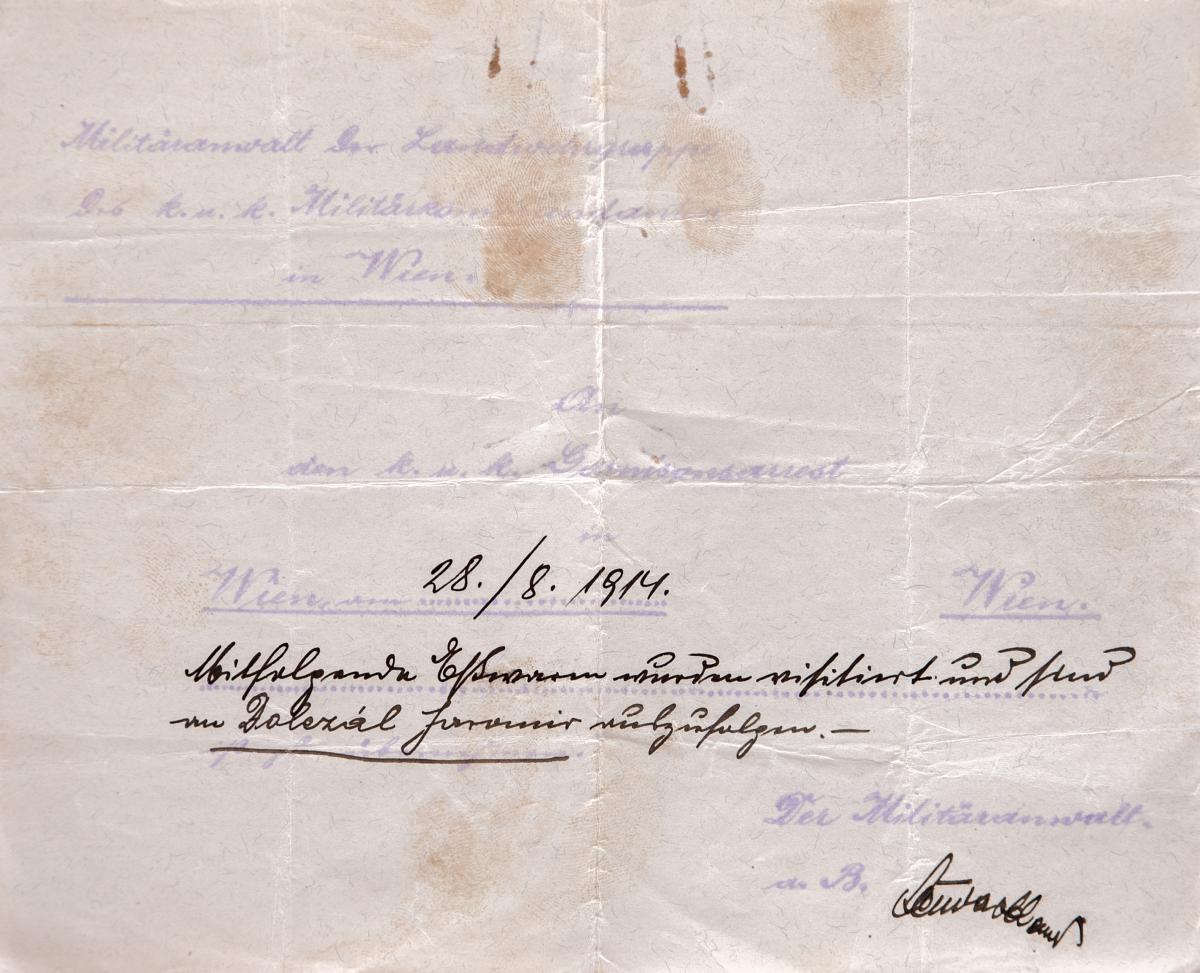 Militäranwalt der Landwehrgruppe
des k. u. k. Militärkommandanten
in Wien.
An
den k. u. k. Garnisonsarrest
in
Wien, am 28./8. 1914. Wien.
Mitfolgende Eßwaren wurden visitiert und sind
an Dolezál Jaromir auszufolgen.—
Der Militäranwalt.